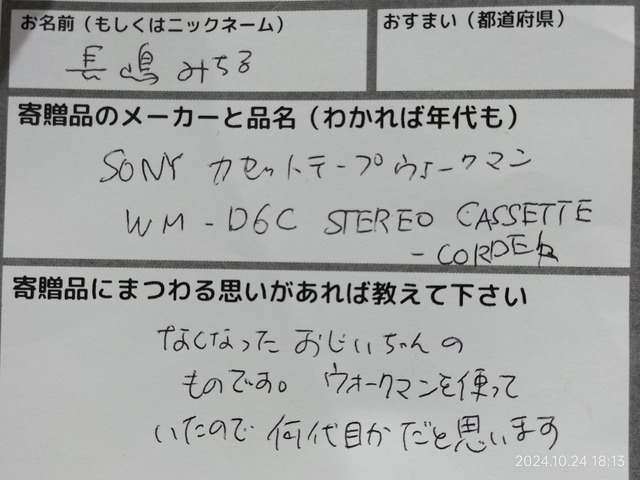 お名前（もしくはニックネーム）
長嶋みちる
おすまい（都道府県）
寄贈品のメーカーと品名（わかれば年代も）
SONY カセットテープウォークマン
WM-D6C STEREO CASSETTE
-CORDER
寄贈品にまつわる思いがあれば教えて下さい
なくなったおじいちゃんの
ものです。ウォークマンを使って
いたので何代目かだと思います
2024.10.24 18:13